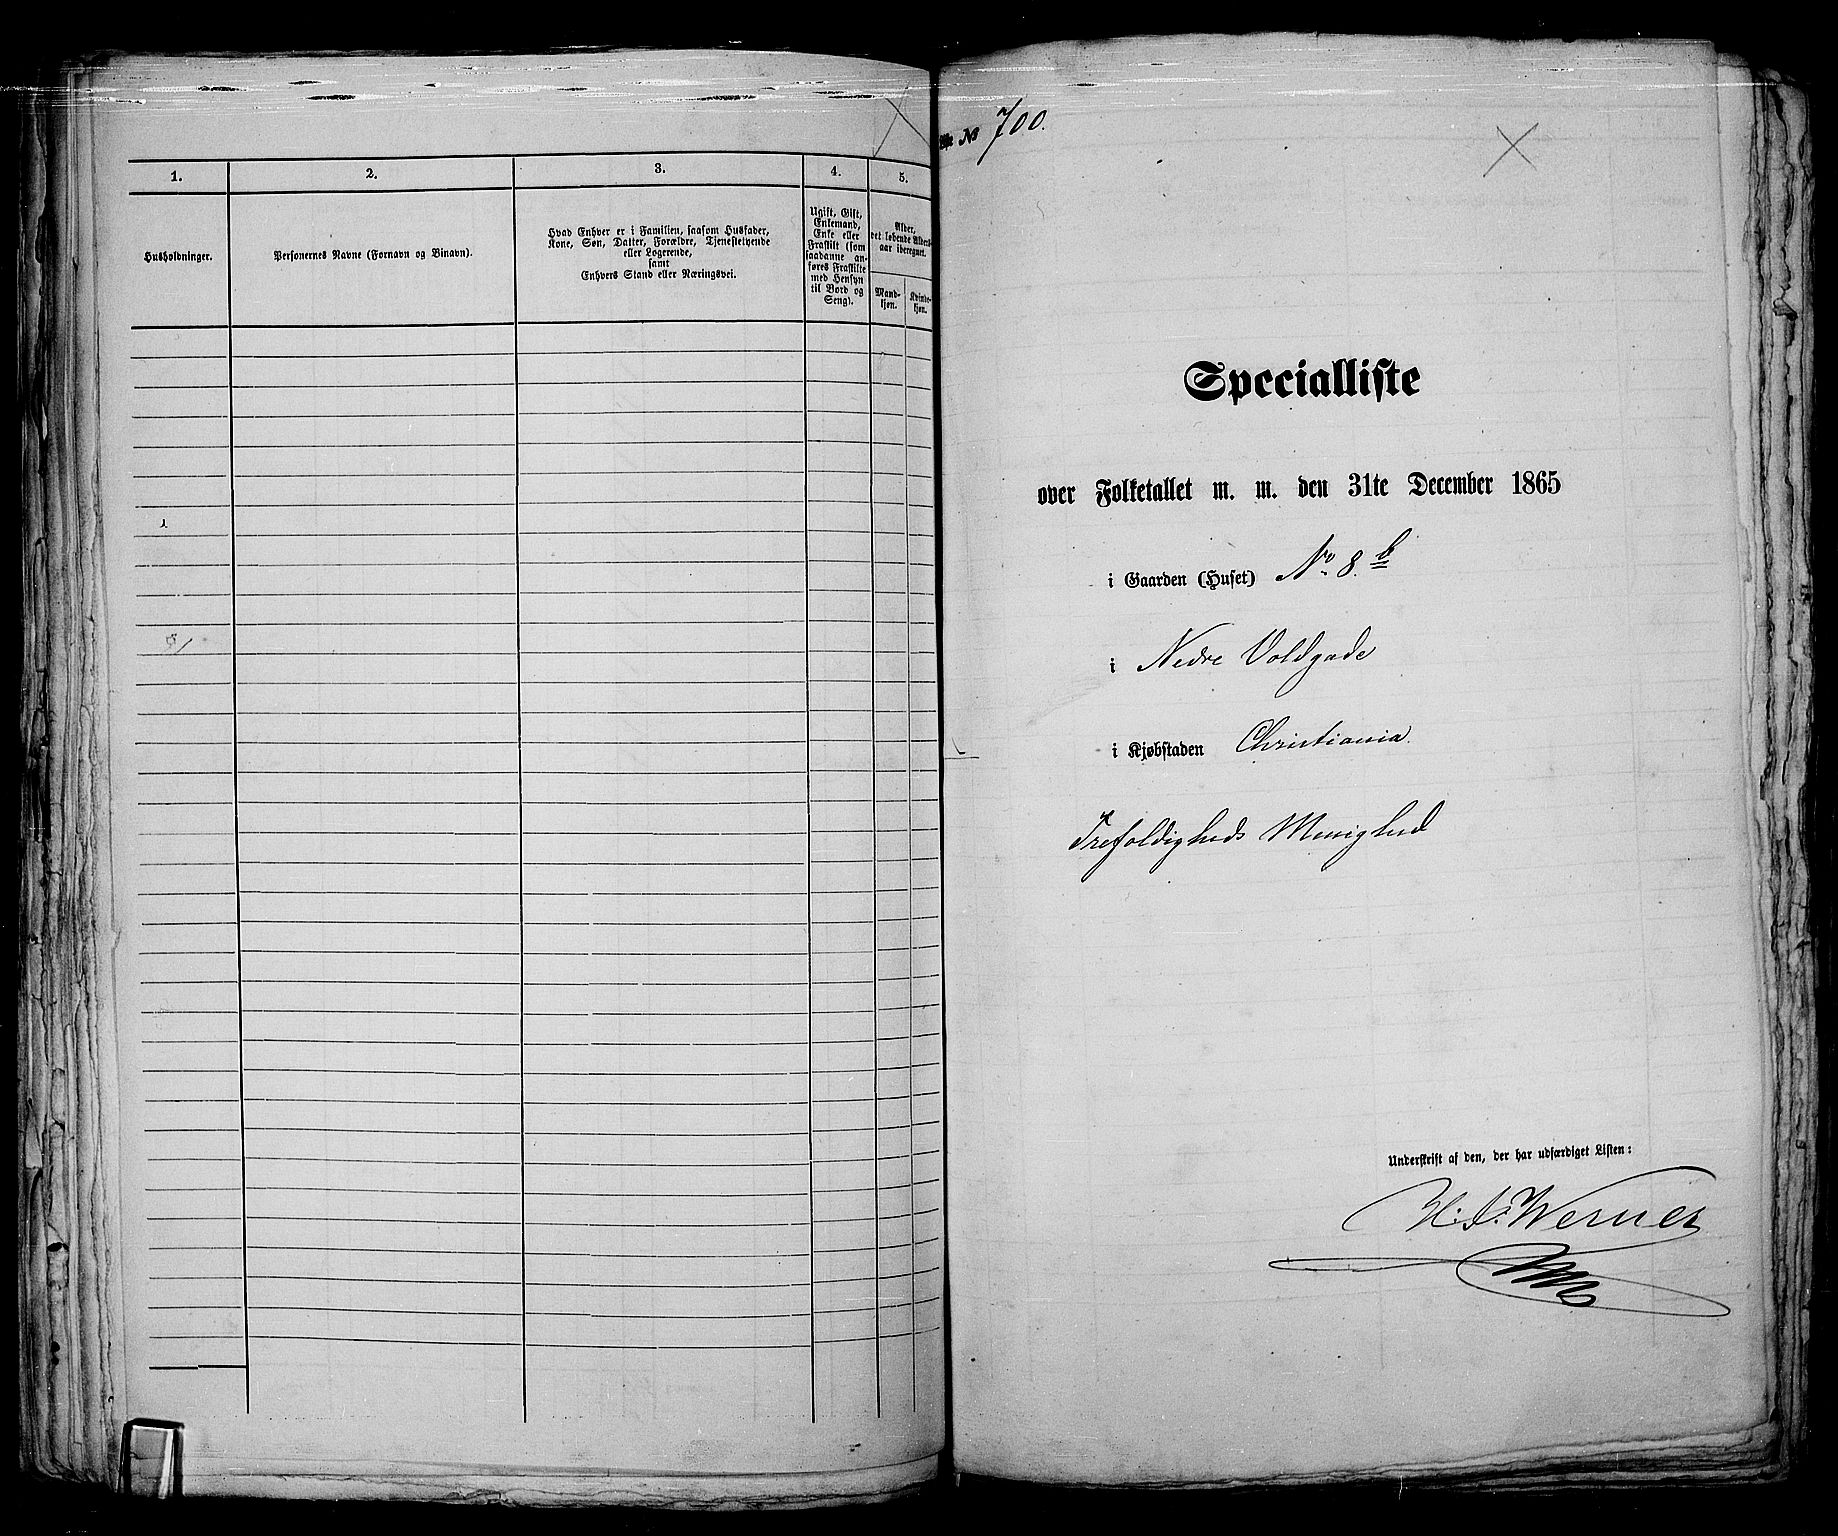 1. 2. 3. 4. 5.
Husholdninger.
Personernes Navne (Fornavn og Binavn).
Hvad Enhver er i Familien, saasom Husfader,
Kone, Søn, Datter, Forældre, Tjenestetyende
eller Logerende,
samt
Enhvers Stand eller Næringsvei.
Ugift, Gift,
Enkemand,
Enke eller
Fraskilt (som
saadanne an-
føres Fraskilte
med Hensyn
til Bord og
Seng).
Alder,
det løbende Alders-
aar iberegnet.
Mand-
kjøn.
Kvinde-
kjøn.
№ 700.
Specialliste
over Folketallet m. m. den 31te December 1865
i Gaarden (Huset) No 8.b
i Nedre Voldgade
i Kjøbstaden Christiania.
Trefoldigheds Menighed
Underskrift af den, der har udfærdiget Listen:
Werner